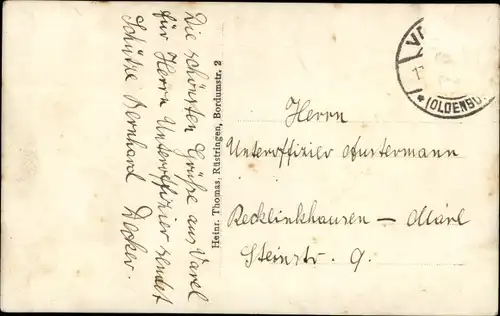 Die schönsten Grüße aus Varel
für Herrn Unteroffizier sendet
Schütze Bernhard Decker.
Heinr. Thomas, Rüstringen, Bordumstr. 2
(OLDENB
Herrn
Unteroffizier Austermann
Recklinkhausen – Marl
Steinstr. 9.